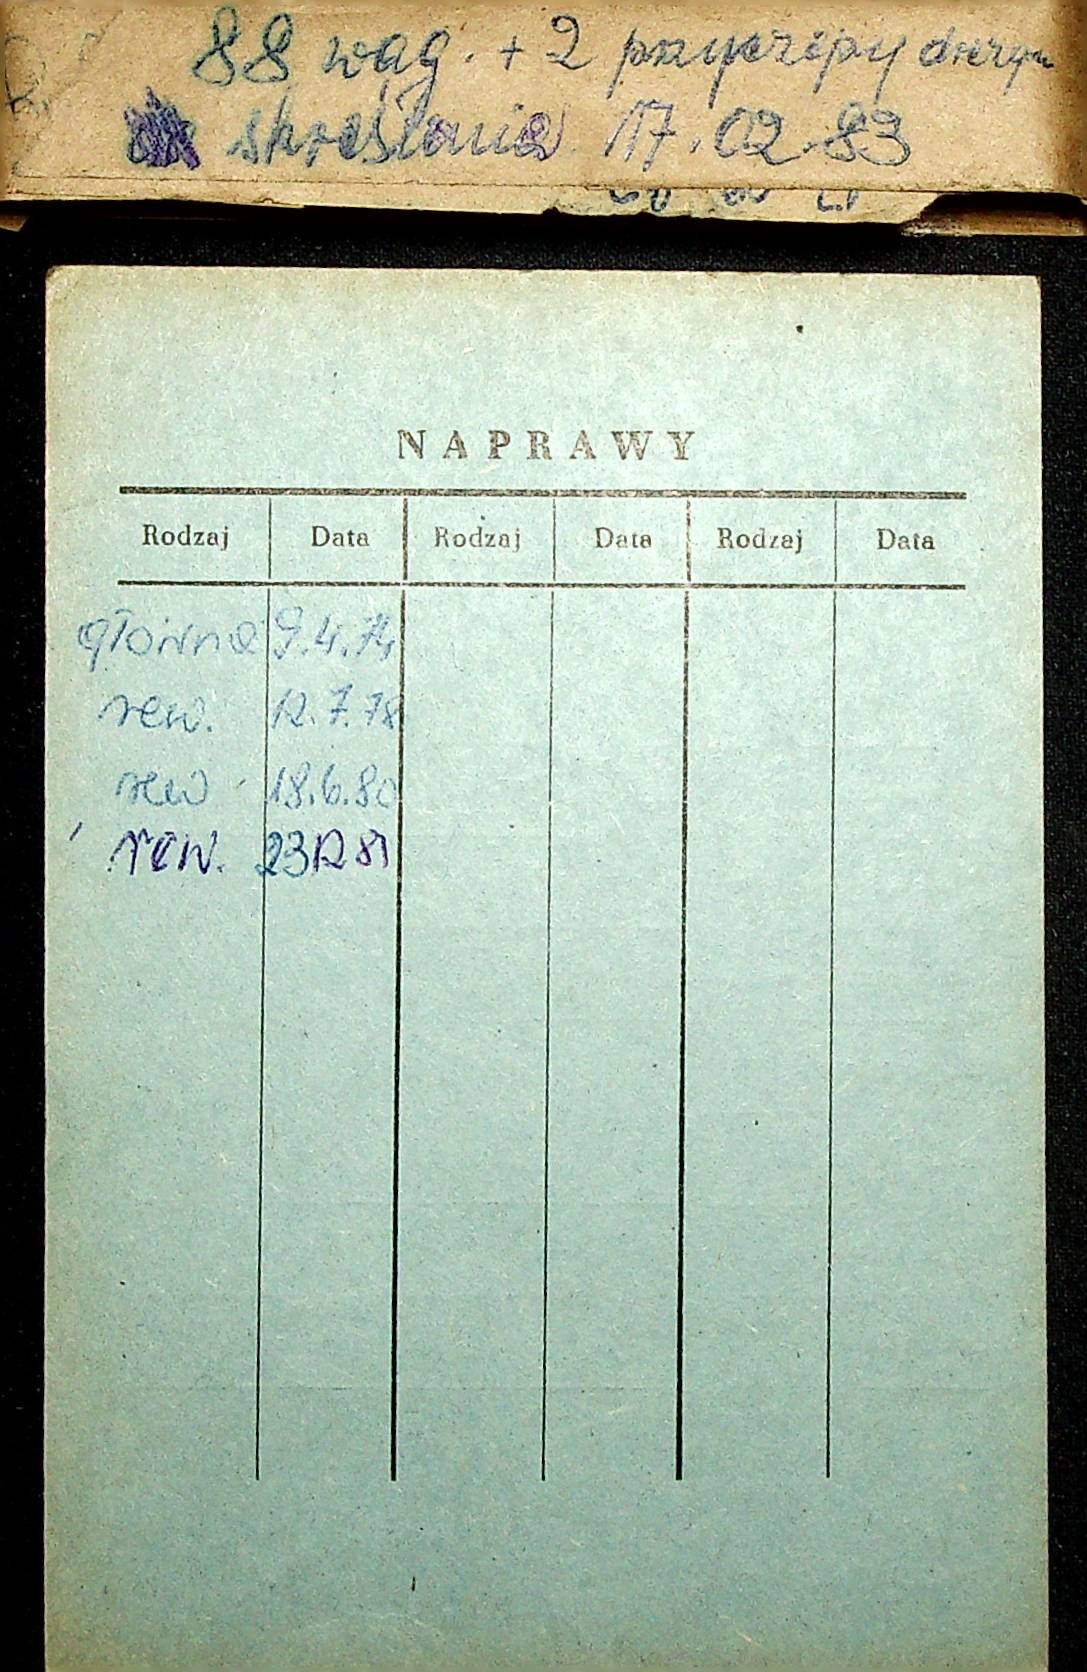 88 wag. + 2 przyczepy
skreślenia 17.02.83
NAPRAWY
Rodzaj Data Rodzaj Data Rodzaj Data
główna 9.4.74
rew. 12.7.78
rew 18.6.80
rew. 23 12 81